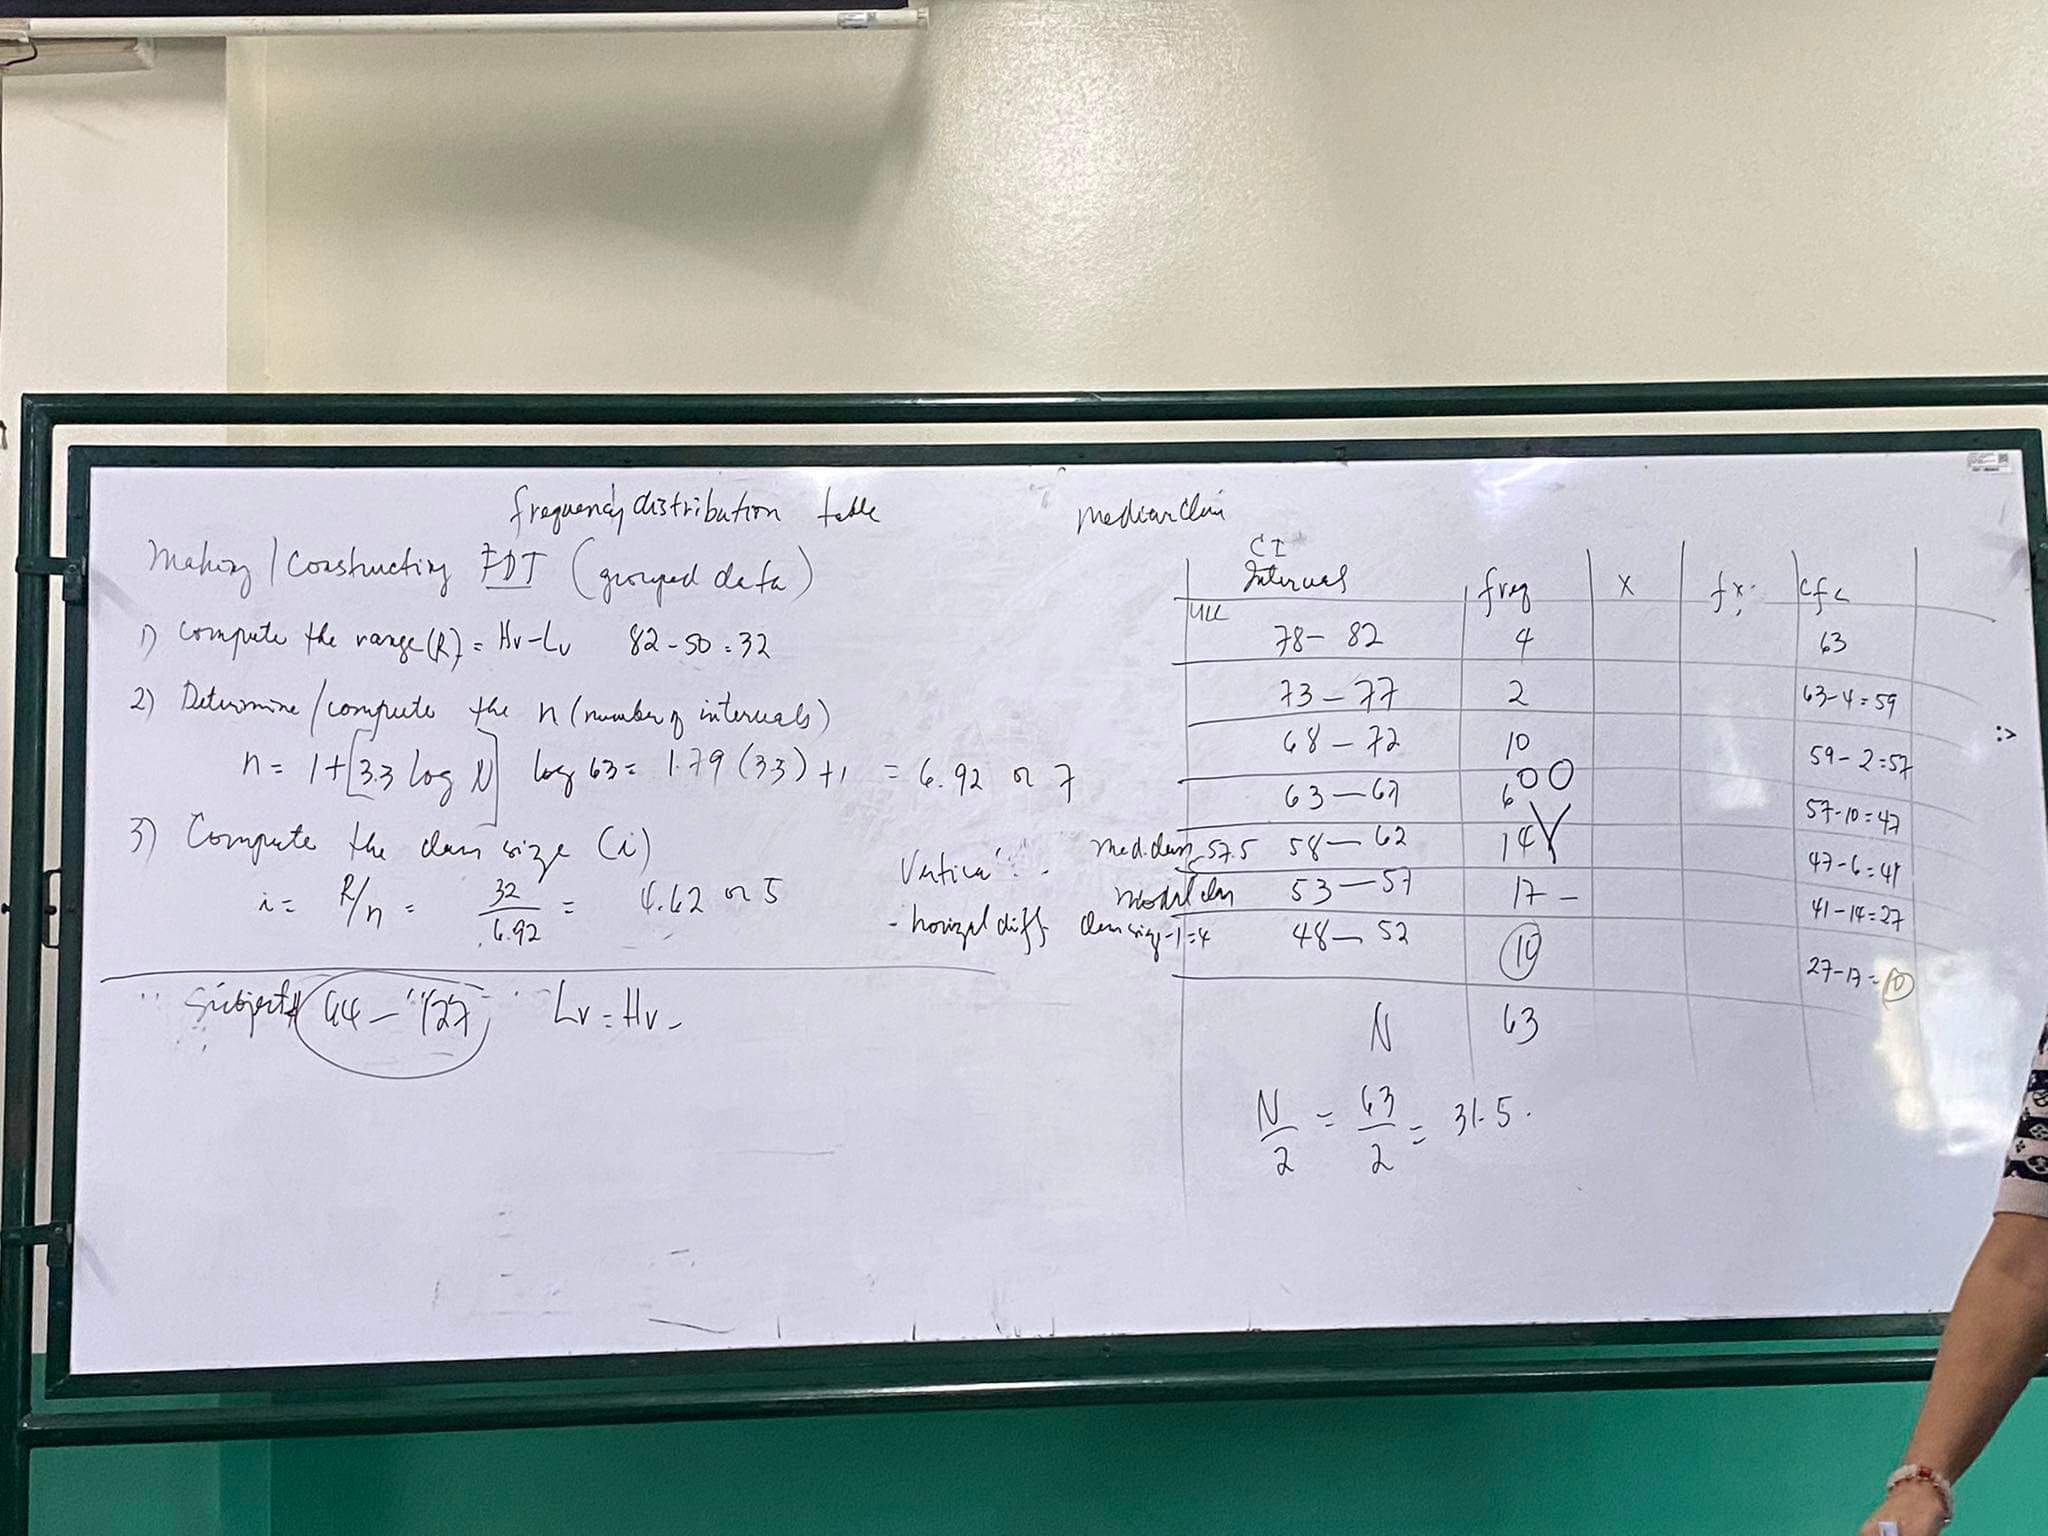 frequency distribution table
Making / Constructing FDT (grouped data)
1) Compute the range (R) = Hv - Lv 82 - 50 = 32
2) Determine / compute the n (number of intervals)
n = 1 + [3.3 log N] log 63 = 1.79 (3.3) + 1 = 6.92 or 7
3) Compute the class size (i)
i = R/n = 32/6.92 = 4.62 or 5
Vertical
- horizal diff class size - 1 = 4
Subject 44 - "127" Lv = Hv -
median class
CI
Intervals freq X fx cf<
ULL
78 - 82 4 63
73 - 77 2 63 - 4 = 59
68 - 72 10 59 - 2 = 57
63 - 67 6 57 - 10 = 47
med. class 57.5 58 - 62 14 47 - 6 = 41
modal class 53 - 57 17 - 41 - 14 = 27
48 - 52 10 27 - 17 = 10
N 63
N/2 = 63/2 = 31.5
:>